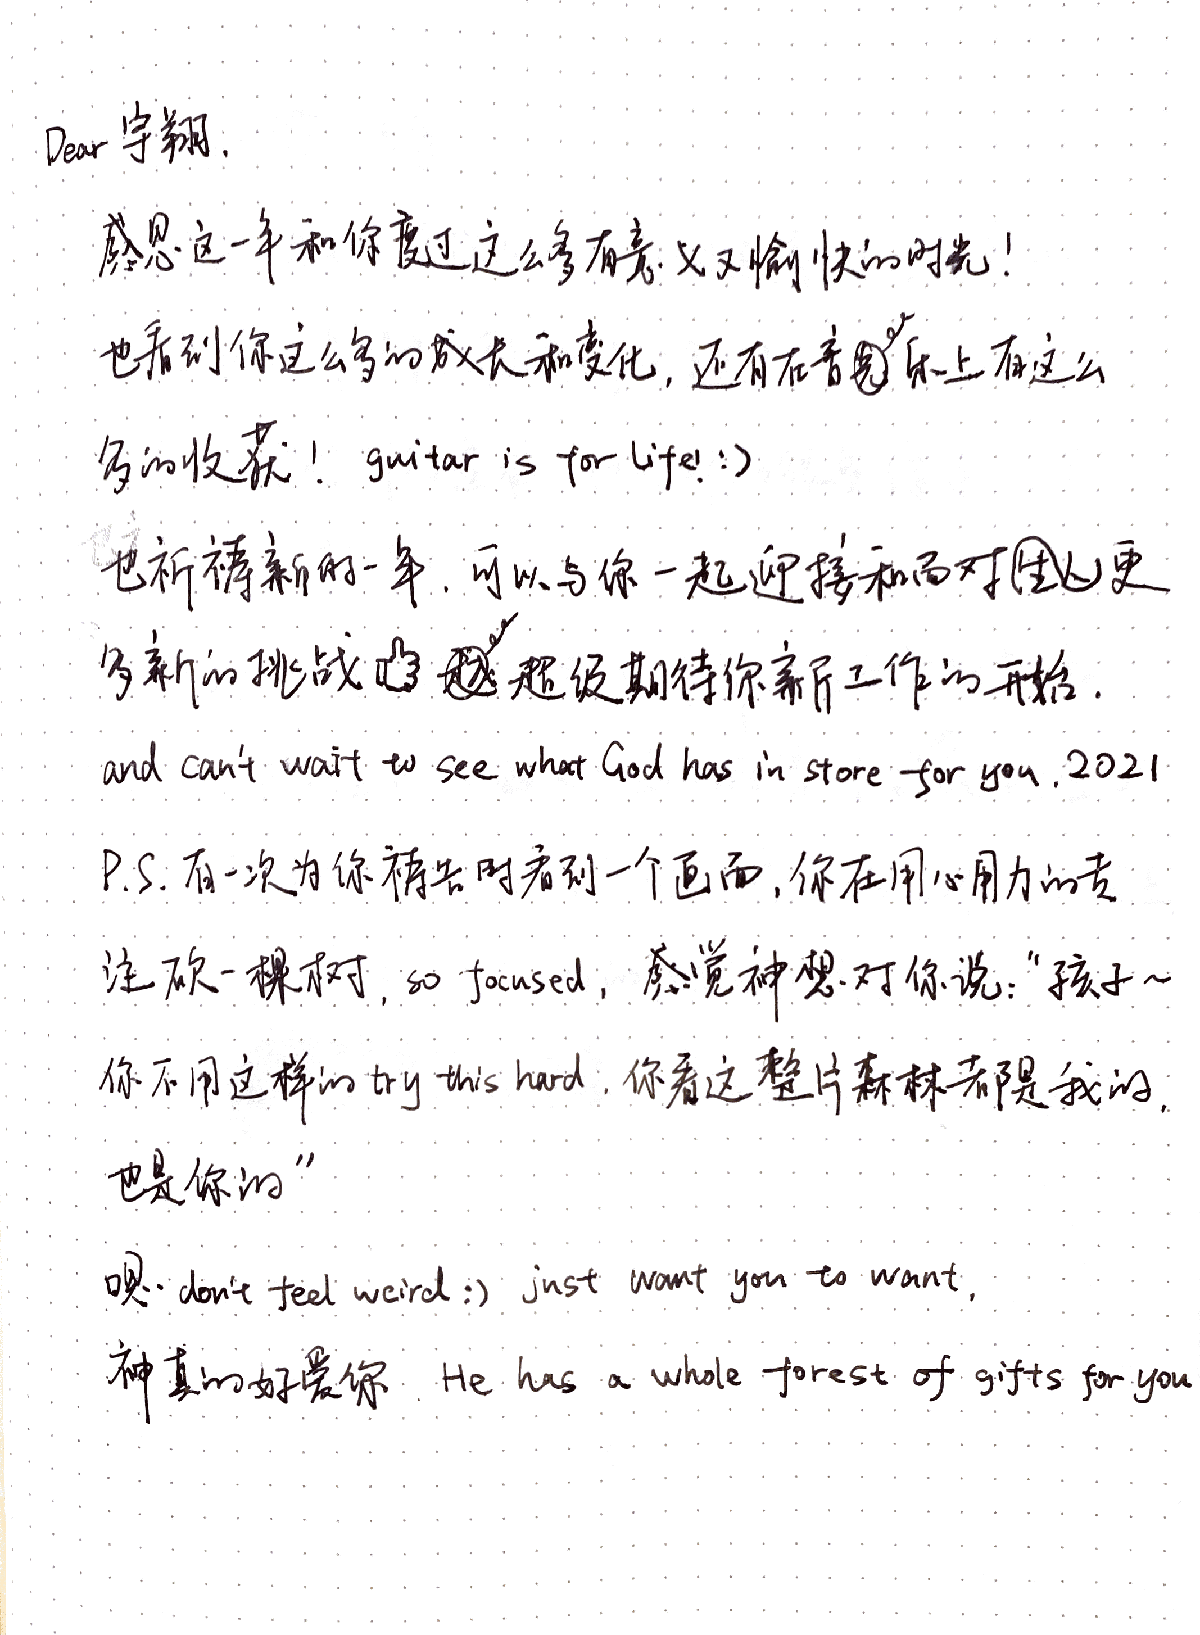 Dear 宇翔,
感恩这一年和你度过这么多有意义又愉快的时光!
也看到你这么多的成长和变化, 还有在音乐上有这么
多的收获! guitar is for life! :)
也祈祷新的一年, 可以与你一起迎接和面对更
多新的挑战 超级期待你新工作的开始.
and can't wait to see what God has in store for you. 2021
P.S. 有一次为你祷告时看到一个画面, 你在用心用力的专
注砍一棵树, so focused, 感觉神想对你说: "孩子~
你不用这样的 try this hard. 你看这整片森林都是我的,
也是你的"
呗.. don't feel weird :) just want you to want,
神真的好爱你 He has a whole forest of gifts for you